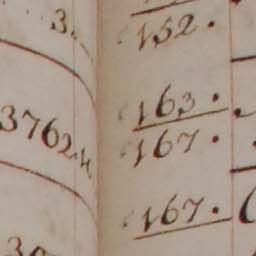 3.
3762.4
152.
163.
167.
167.